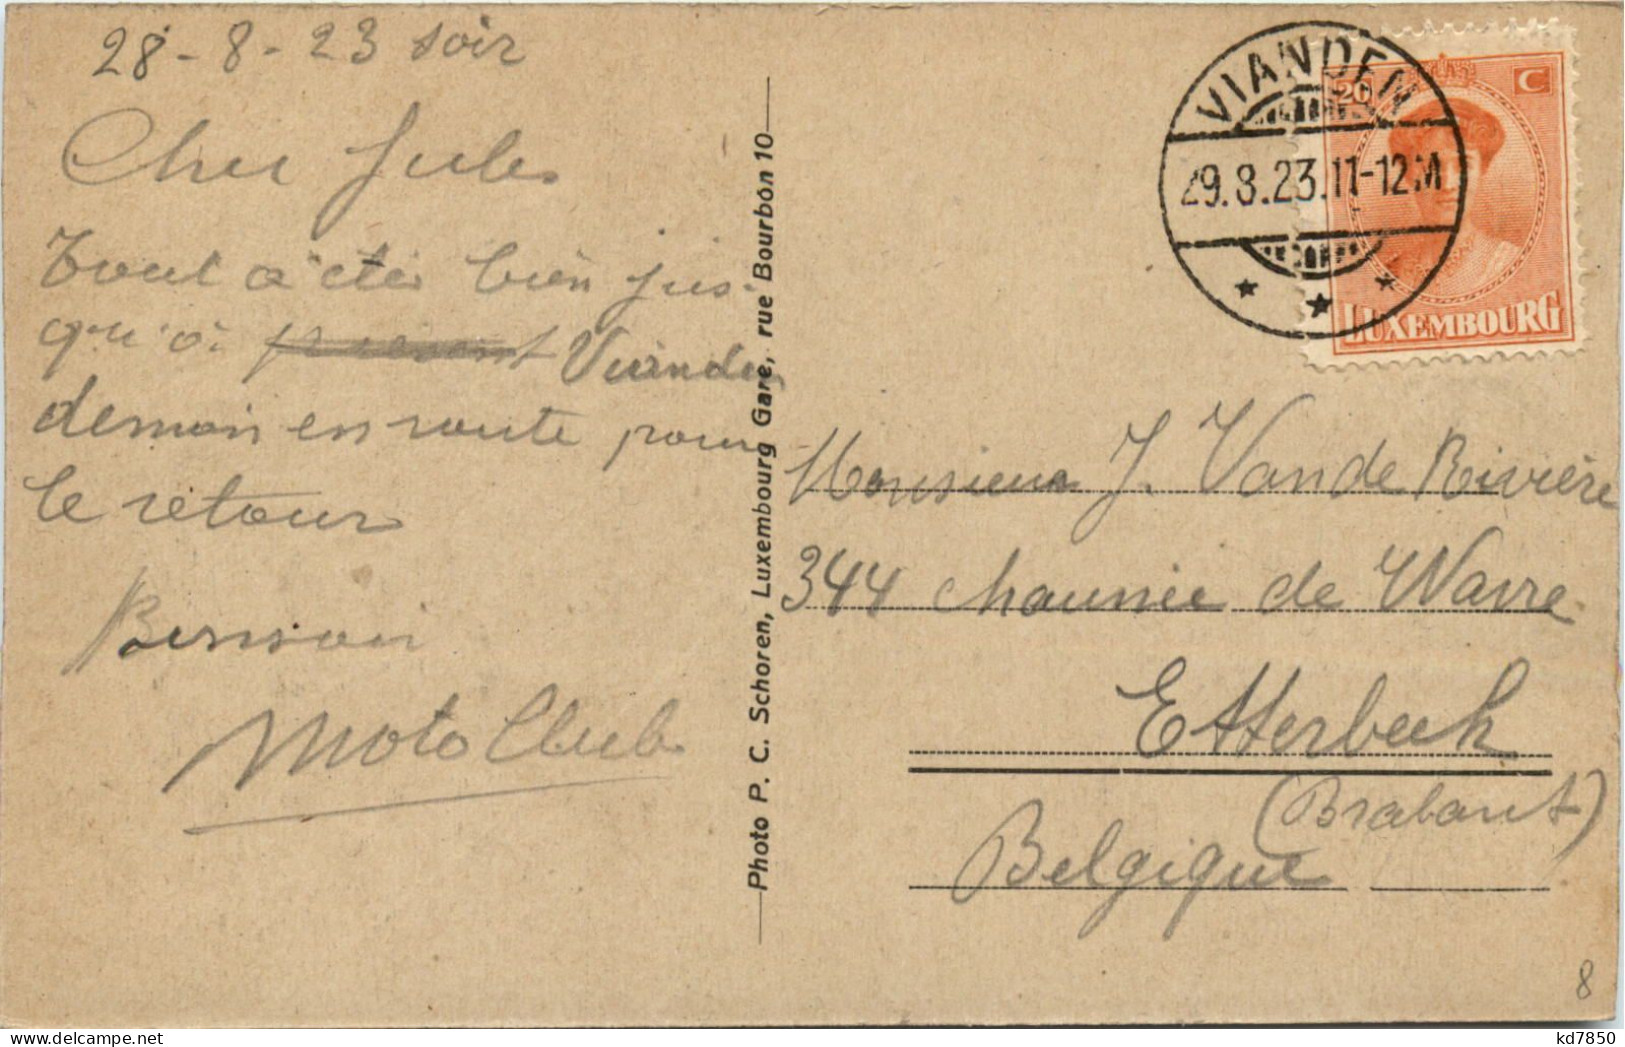 28-8-23 soir
Cher Jules
Tout a été bien jus-
qu'à present Vianden
demain en route pour
le retour
Moto Club
Photo P. C. Schoren, Luxembourg Gare, rue Bourbon 10
VIANDEN
29.8.23.11-12M
20 C
LUXEMBOURG
Monsieur J. Vande Rivière
344 chaussée de Wavre
Etterbeek
(Brabant)
Belgique
8
kd7850